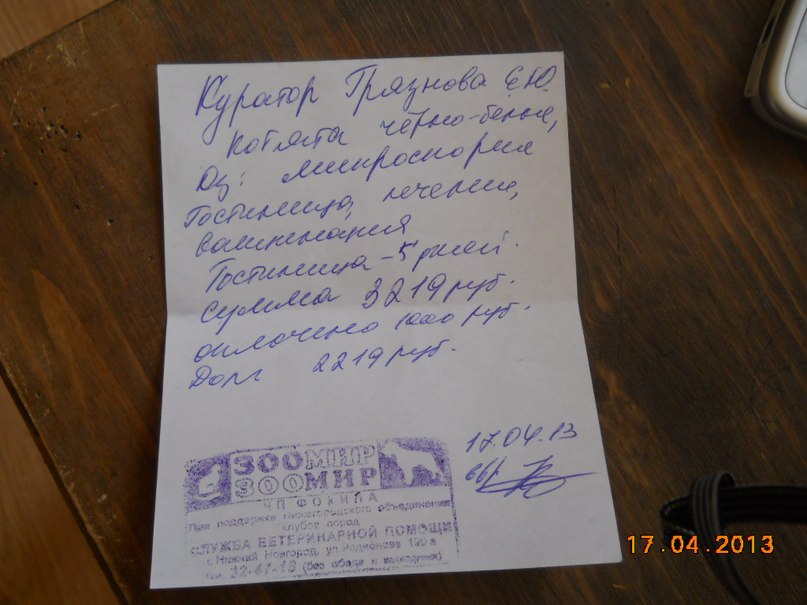 Куратор Грязнова Е.Ю.
Котята чёрно-белые,
Dz: микроспория
Гостиница, лечение,
вакцинация
Гостиница - 5 дней.
сумма 3219 руб.
оплачено 1000 руб.
Долг 2219 руб.
17.04.13
ЗООМИР
ЗООМИР
ЧП ФОКИНА
При поддержке Нижегородского объединения
клубов пород
СЛУЖБА ВЕТЕРИНАРНОЙ ПОМОЩИ
г. Нижний Новгород, ул. Родионова
(без обеда и выходных)
17.04.2013